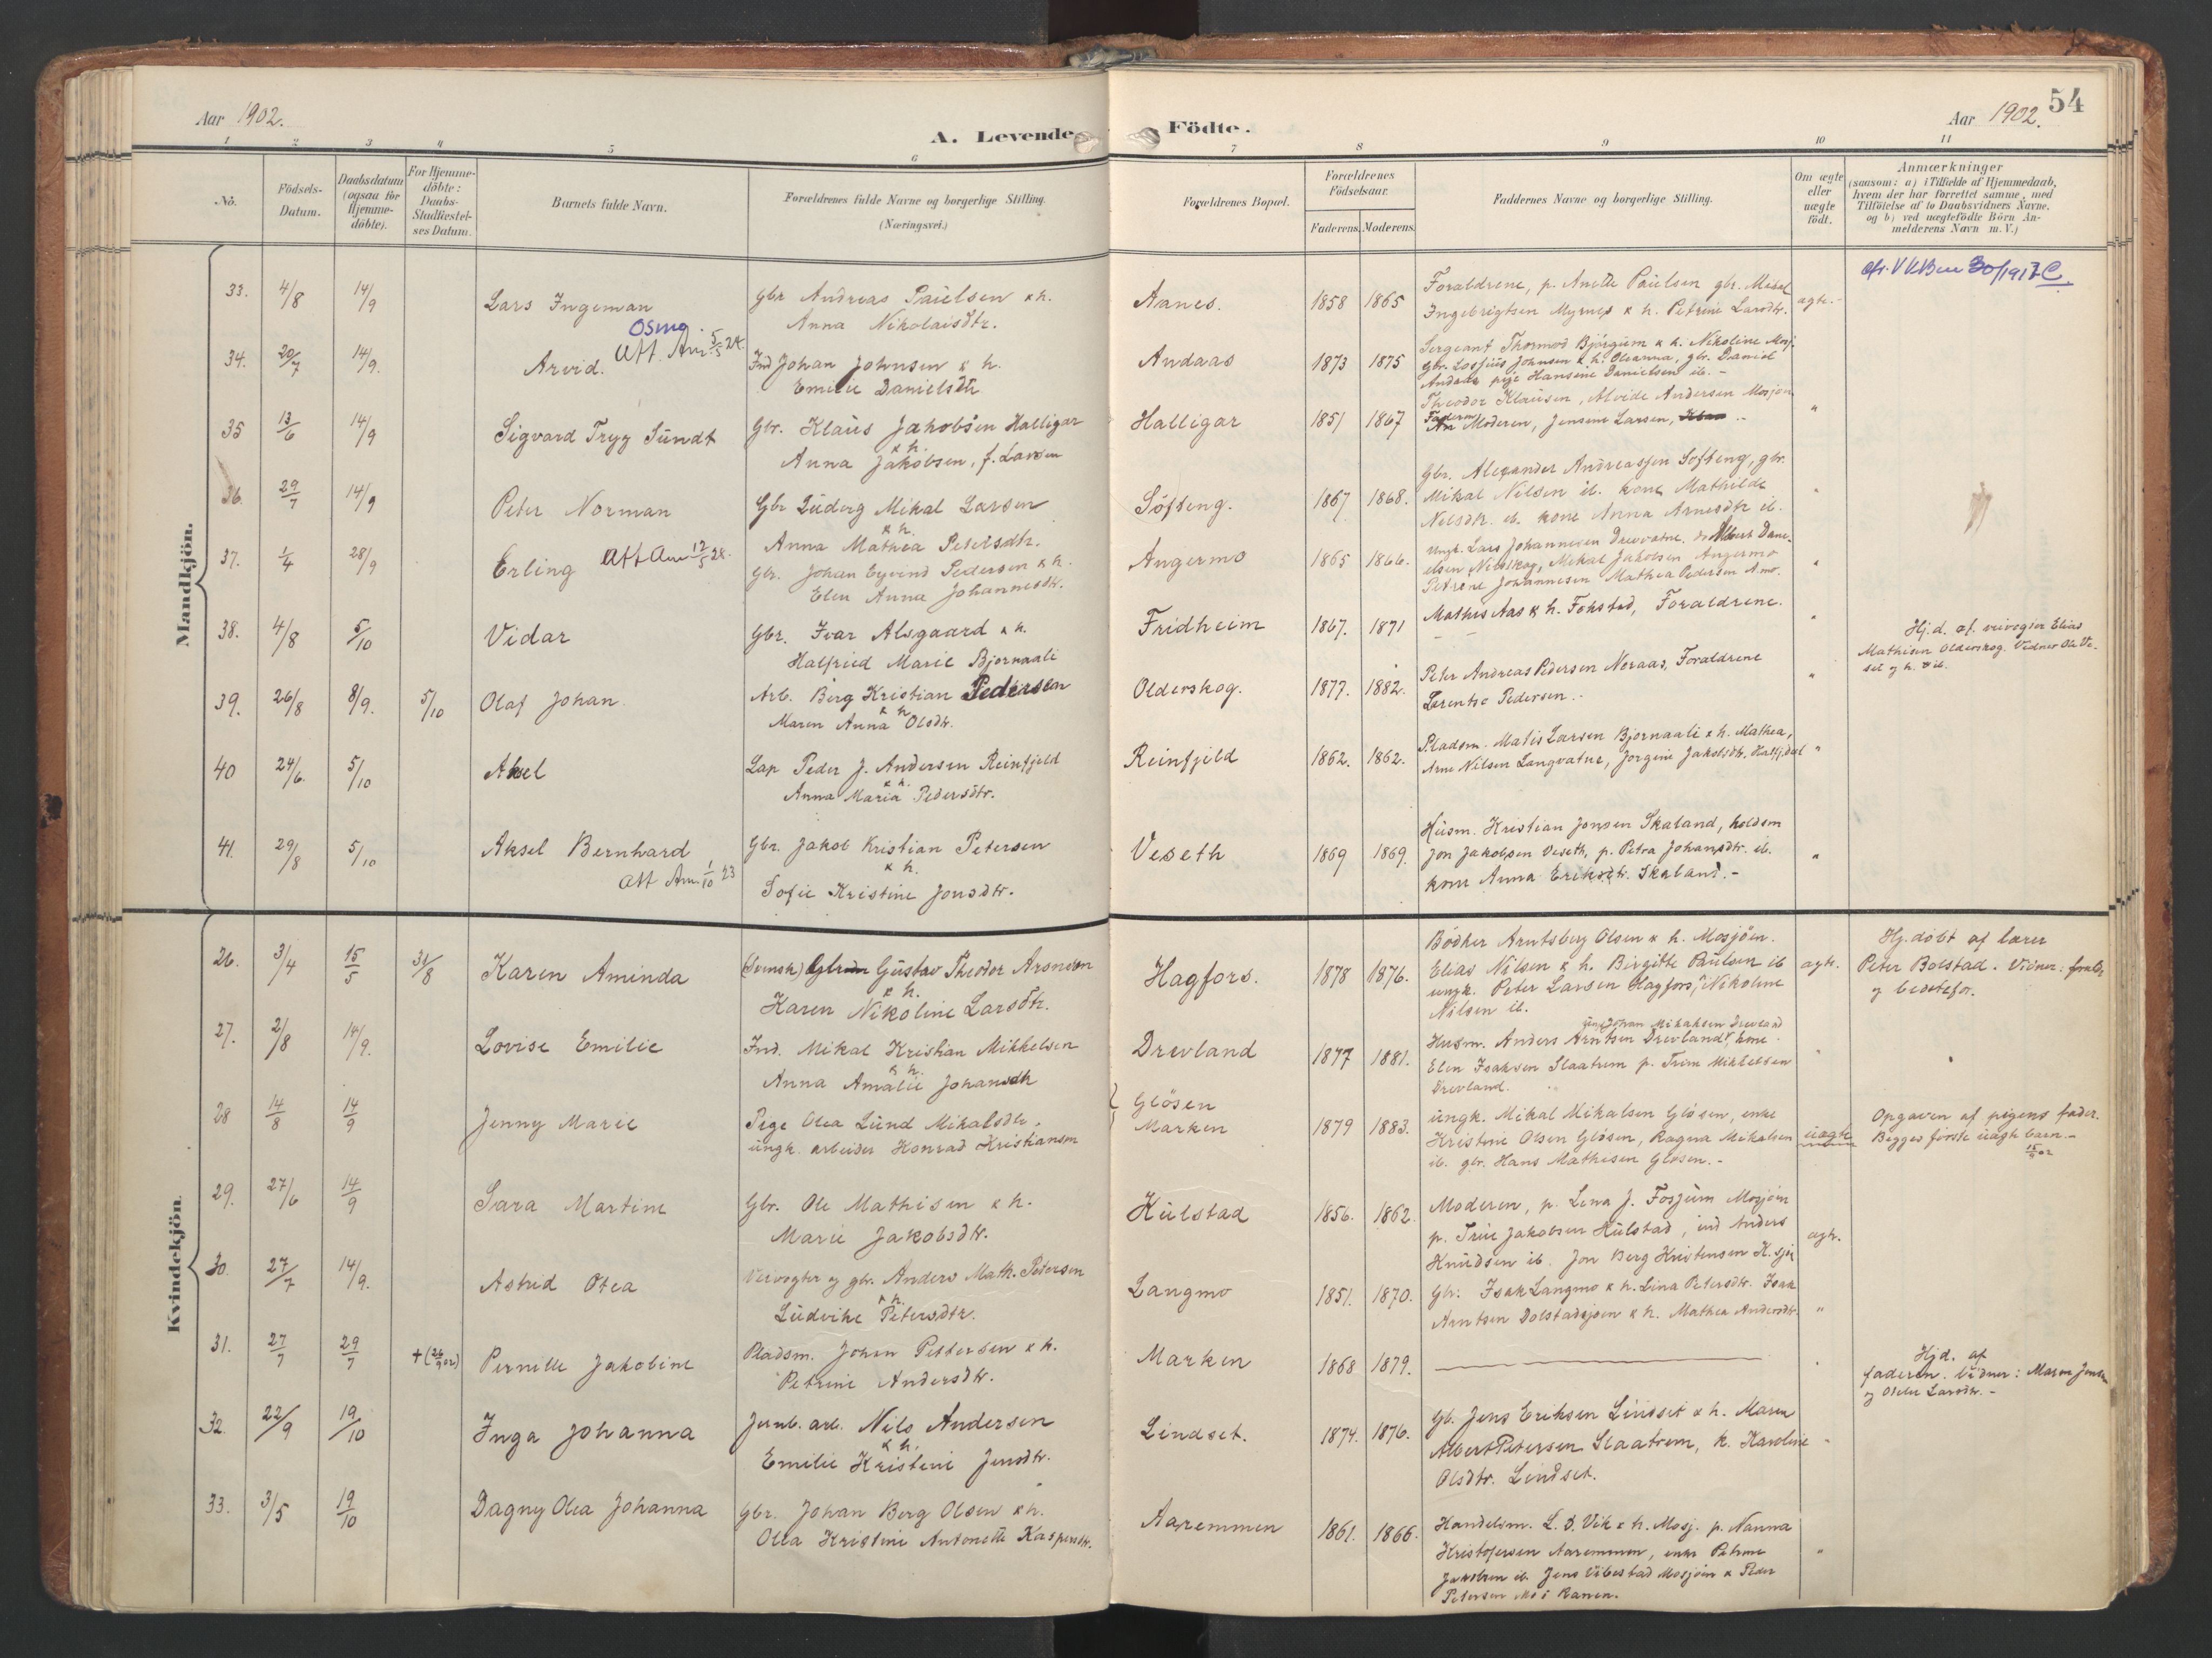 Aar 1902.
A. Levende Födte.
Aar 1902.
54
1 2 3 4 5 6 7 8 9 10 11
No.
Födsels-Datum.
Daabsdatum (ogsaa for Hjemme-döbte).
For Hjemme-döbte: Daabs-Stadfæstel-ses Datum.
Barnets fulde Navn.
Forældrenes fulde Navne og borgerlige Stilling.
(Næringsvei.)
Forældrenes Bopæl.
Forældrenes Födselsaar.
Faderens. Moderens.
Faddernes Navne og borgerlige Stilling.
Om ægte eller uægte födt.
Anmærkninger
(saasom: a) i Tilfælde af Hjemmedaab,
hvem der har forrettet samme, med
Tilföielse af to Daabsvidners Navne,
og b) ved uægtefödte Börn An-
melderens Navn m. V.)
Mandkjön.
33. 4/8 14/9 Lars Ingeman
Gbr Andreas Paulsen & h.
Anna Nikolaisdtr.
Aanes. 1858 1865
Foraldrene, p. Anette Paulsen gbr. Mikal
Ingebrigtsen Myrnes & h. Petrine Larsdtr.
agte.
34. 20/7 14/9. Arvid.
Osmo.
Att. Am. 5/5 24.
Ind Johan Johnsen & h.
Emelie Danielsdtr
Andaas 1873 1875
Sergeant Thormod Bjørgum & h. Nikoline Mosj.
Gbr. Losjus Johnsen & h. Oleanna, gbr. Daniel
Andaas pige Hansine Danielsen ib. -
35 13/6 14/9 Sigvard Tryg Sundt
Gbr. Klaus Jakobsen Halligar
& h.
Anna Jakobsen, f. Larsen
Halligar 1851 1867
Theodor Klausen, Alvide Andersen Mosjøn
Faderen
Moderen, Jensine Larsen,
"
36. 29/7 14/9 Peter Norman
Gbr Ludvig Mikal Larsen
& h.
Anna Mathea Petersdtr.
Søfteng. 1867 1868.
Gbr. Alexander Andreassen Søfteng, gbr.
Mikal Nilsen ib. kone Mathilde
Nilsdtr. ib. kone Anna Arnesdtr ib.
"
37. 1/4 28/9 Erling
Att Am 12/5 28.
Gbr. Johan Eyvind Pedersen & h.
Elen Anna Johannesdtr.
Angermo 1865 1866.
Ungk. Lars Johannesen Drevvatne. do Albert Dani-
elsen Nerskog, Mikal Jakobsen Angermo
Petrine Johannesen Mathea Pedersen A.mo.
"
38. 4/8 5/10 Vidar
Gbr. Ivar Alsgaard & h.
Halfried Marie Bjornaali
Fridheim 1867. 1871
Mathis Aas & h. Fokstad, Foraldrene.
"
39. 26/8 8/9. 5/10 Olaf Johan.
Arb. Berg Kristian Pedersen
& h
Maren Anna Olsdtr.
Olderskog. 1877. 1882.
Peter Andreas Pedersen Noraas, Foraldrene
Lorentse Pedersen.
"
Hj.d. af veivogter Elias
Mathisen Olderskog. Vidner Ole Ve-
set og h. ib.
40 24/6. 5/10 Aksel
Lap Peder J. Andersen Reinfjeld
& h.
Anna Maria Pedersdtr.
Reinfjeld 1862. 1862.
Pladsm. Matis Larsen Bjornaali & h. Mathea,
Arne Nilsen Langvatne, Jorgine Jakobsdtr. Hatfj.dal
"
41. 29/8 5/10 Aksel Bernhard
Att Am. 1/10 23
Gbr. Jakob Kristian Petersen
& h.
Sofie Kristine Jonsdtr.
Veseth 1869 1869.
Husm. Kristian Jonsen Skaland, holdsm
Jon Jakobsen Veseth, p. Petra Johansdtr. ib.
kone Anna Eriksdtr. Skaland. -
"
Kvindekjön.
26. 3/4 15/5 31/8 Karen Aminda
(Svensk) Gustav Theodor Aronsen
& h.
Karen Nikoline Larsdtr.
Hagfors. 1878 1876.
Bødker Arntsberg Olsen & h. Mosjøen.
Elias Nilsen & h. Birgitte Paulsen ib
ungk. Peter Larsen Hagfors, Nikoline
Nilsen ib.
agte.
Hj.døbt af lærer
Peter Bolstad. Vidner:
og bedstefor.
27. 2/8 14/9. Lovise Emilie
Ind. Mikal Kristian Mikkelsen
& h.
Anna Amalie Johansdtr
Drevland 1877 1881.
Johan Mikalsen Drevland
Husm. Anders Arntsen Drevland, kone
Elen Isaksen Slaatrem p. Trine Mikkelsen
Drevland.
28 14/8 14/9 Jenny Marie
Pige Olea Lund Mikalsdtr.
ungk. arbeider Konrad Kristiansen
Gløsen
Marken
1879 1883.
ungk. Mikal Mikalsen Gløsen, enke
Kristine Olsen Gløsen, Ragna Mikalsen
ib. gbr. Hans Mathisen Gløsen. -
uagte
Opgaven af pigens fader.
Begges første uagte barn. -
15/9 02
29. 27/6 14/9 Sara Martine
Gbr. Ole Mathisen & h.
Marie Jakobsdtr.
Kulstad 1856. 1862.
Moderen, p. Lena J. Fosjum Mosjøen
p. Trine Jakobsen Kulstad, ind Anders
Knudsen ib. Jon Berg Kristensen K.sjø
agte.
30. 27/7 14/9. Astrid Otea
Veivogter og gbr. Anders Math. Petersen
& h.
Ludvike Petersdtr.
Langmo 1851. 1870.
Gbr. Isak Langmo & h. Lina Petersdtr. Isak
Arntsen Dolstadsjøen & h. Mathea Andersdtr.
"
31. 27/7 29/7 + (26/9 02) Pernille Jakobine
Pladsm. Johan Pettersen & h.
Petrine Andersdtr.
Marken 1868 1879.
Hjd. af
faderen. Vidner: Maren Jensen
og Larsdtr. -
32. 22/9 19/10 Inga Johanna
Jernb. arb. Nils Andersen
& h.
Emilie Kristine Jensdtr.
Lindset. 1874. 1876.
Gb. Jens Eriksen Lindset & h. Maren
Albert Petersen Slaatrem, k. Karoline
Olsdtr. Lindset.
33. 3/5 19/10 Dagny Olea Johanna
Gbr. Johan Berg Olsen & h.
Olea Kristine Antonette Kaspersdtr.
Aaremmen 1861. 1866.
Handelsm. L. D. Vik & h. Mosj. p. Nanna
Kristofersen Aaremmen, enke Petrine
Jakobsen ib. Jens Vibestad Mosjøen & Peder
Petersen Mo i Ranen.
"